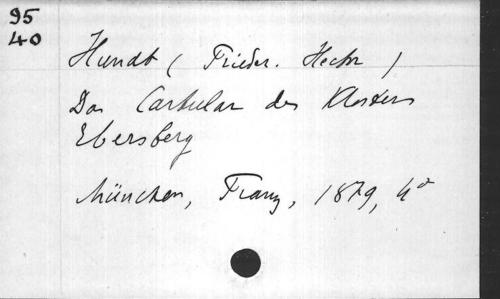 95
40
Hundt (Frieder. Hector)
Das Cartular des Klosters
Ebersberg
München, Franz, 1879, 4°